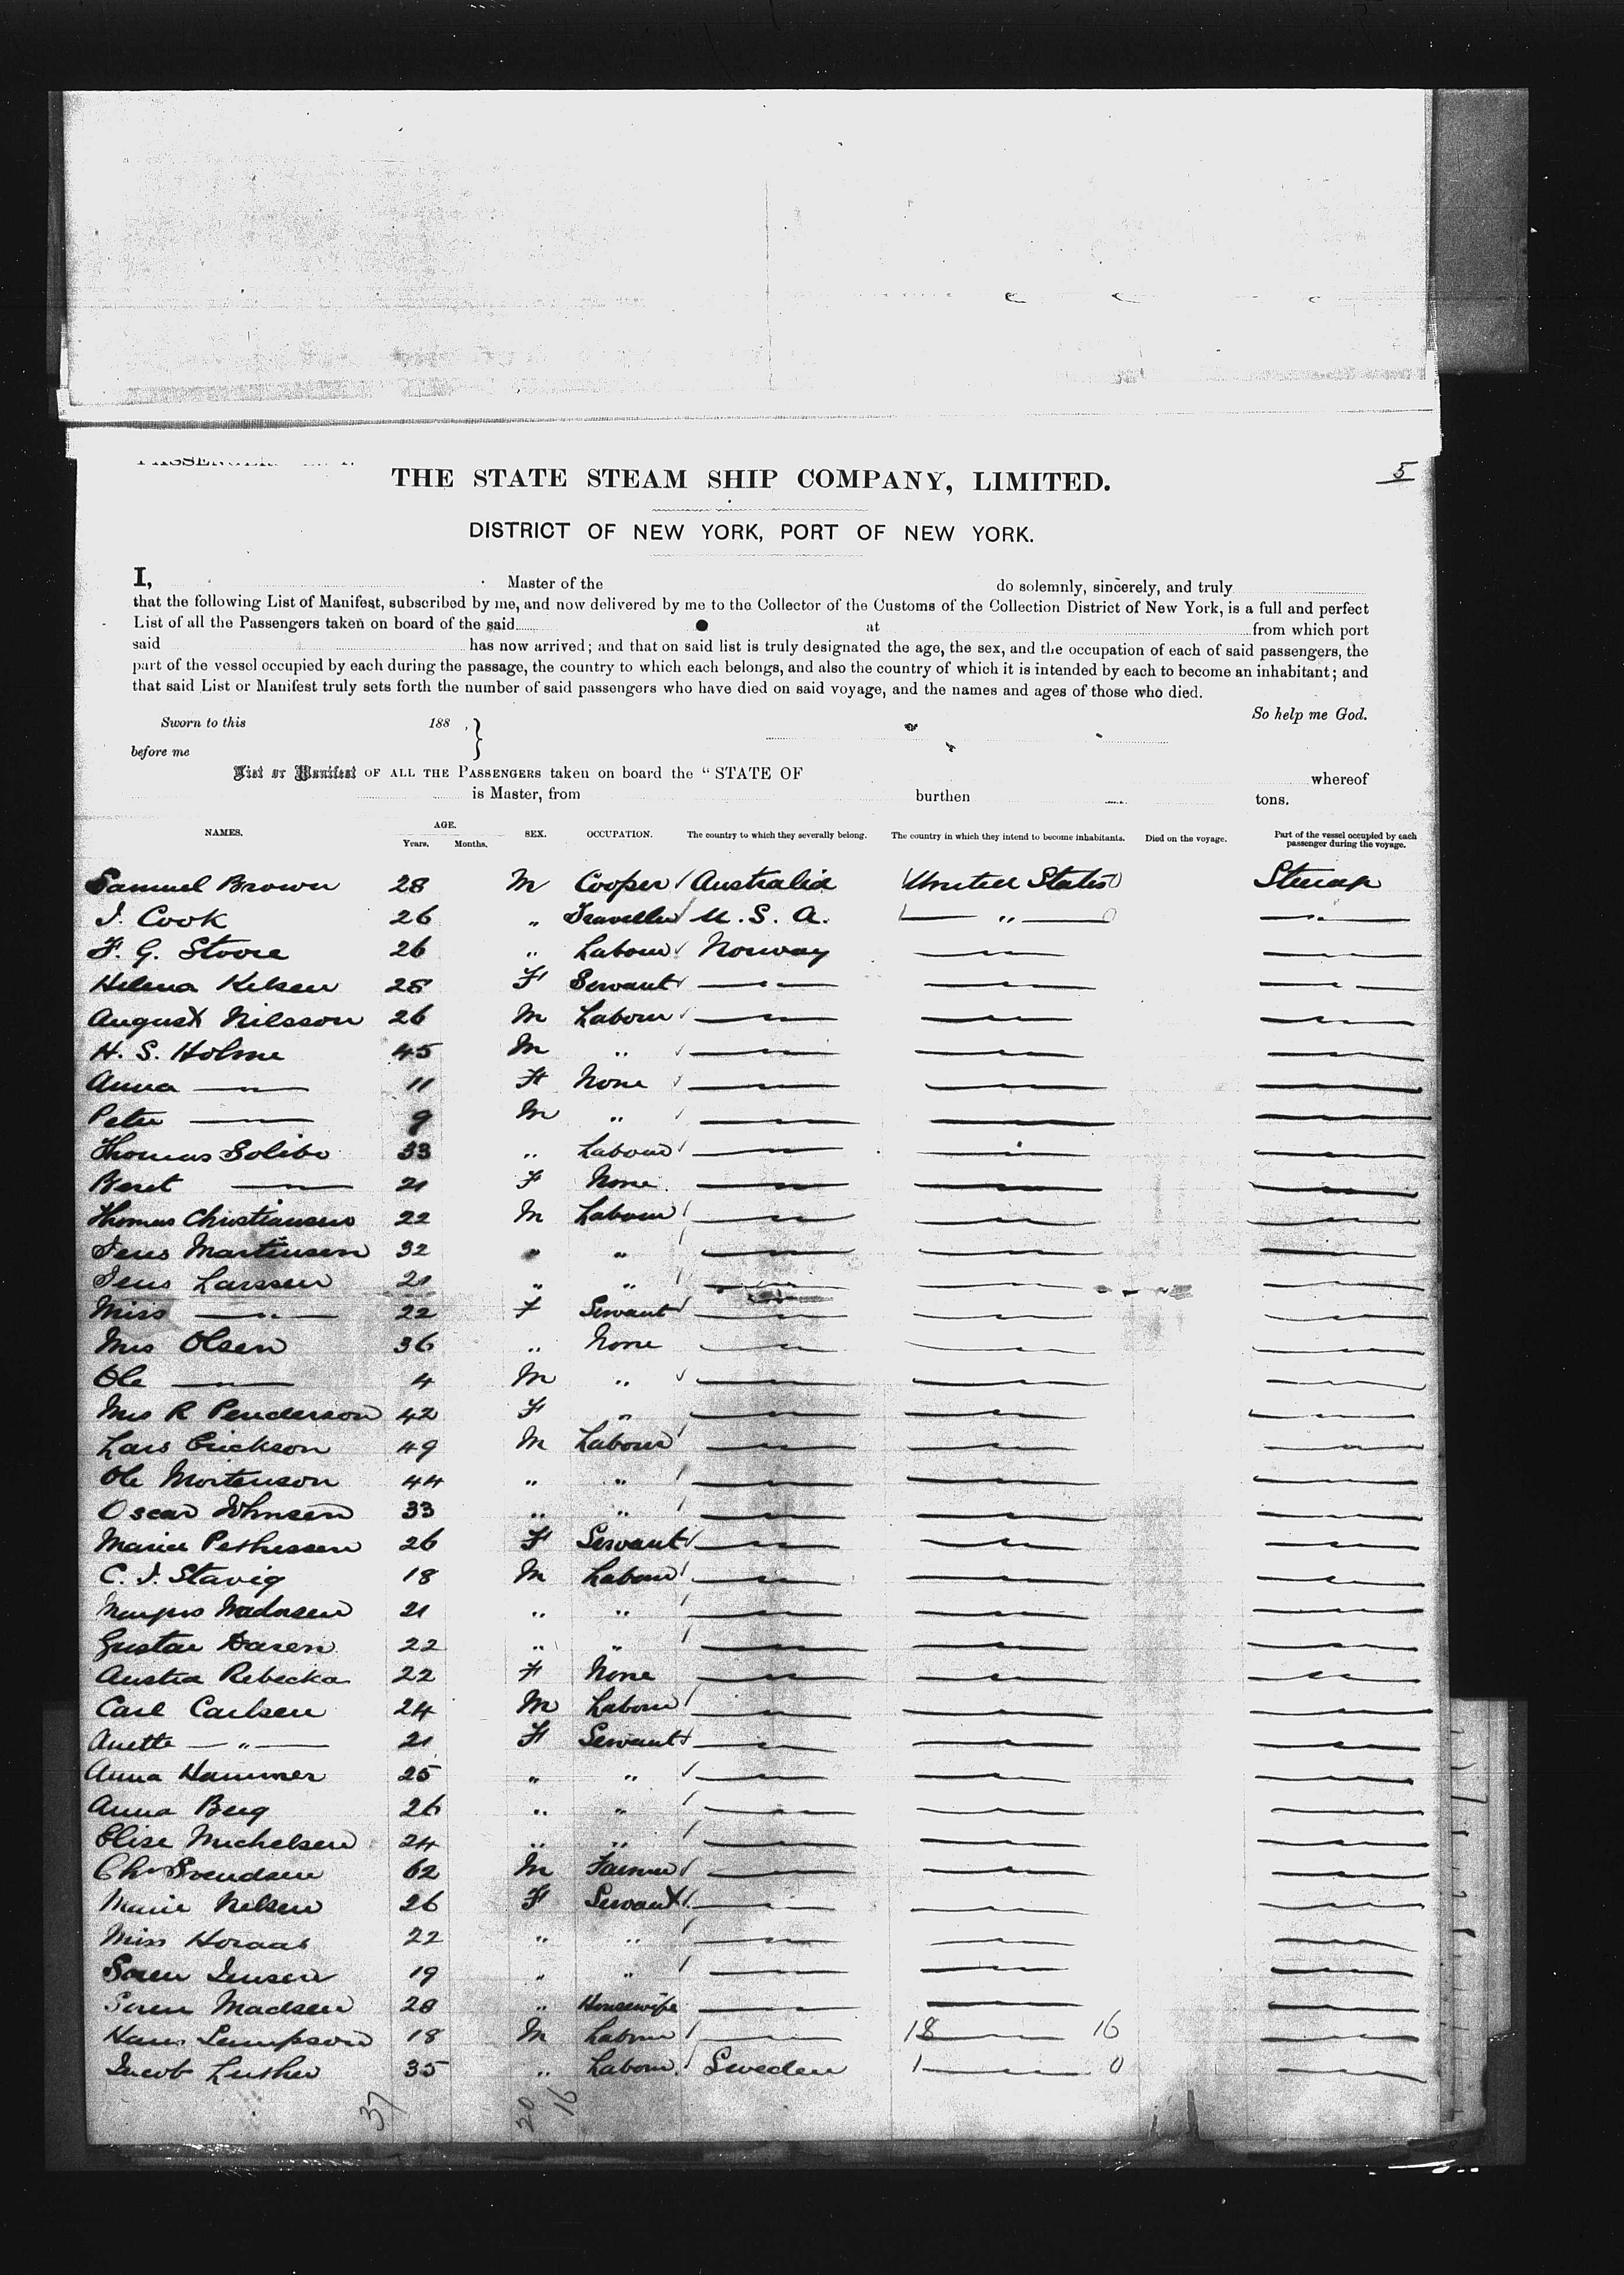 5
THE STATE STEAM SHIP COMPANY, LIMITED.
DISTRICT OF NEW YORK, PORT OF NEW YORK.
I, Master of the do solemnly, sincerely, and truly
that the following List of Manifest, subscribed by me, and now delivered by me to the Collector of the Customs of the Collection District of New York, is a full and perfect
List of all the Passengers taken on board of the said at from which port
said has now arrived; and that on said list is truly designated the age, the sex, and the occupation of each of said passengers, the
part of the vessel occupied by each during the passage, the country to which each belongs, and also the country of which it is intended by each to become an inhabitant; and
that said List or Manifest truly sets forth the number of said passengers who have died on said voyage, and the names and ages of those who died.
So help me God.
Sworn to this 188 , }
before me
List or Manifest OF ALL THE PASSENGERS taken on board the "STATE OF whereof
is Master, from burthen tons.
NAMES. AGE. Years. Months. SEX. OCCUPATION. The country to which they severally belong. The country in which they intend to become inhabitants. Died on the voyage. Part of the vessel occupied by each passenger during the voyage.
Samuel Brown 28 M Cooper Australia United States Steerage
J. Cook 26 " Traveller U. S. A. — " — — " —
F. G. Stoore 26 " Labour Norway — " — — " —
Helena Kelsen 28 F Servant — " — — " — — " —
August Nilsson 26 M Labour — " — — " — — " —
H. S. Holme 45 M " — " — — " — — " —
Anna — " — 11 F None — " — — " — — " —
Peter — " — 9 M " — " — — " — — " —
Thomas Solibo 33 " Labour — " — — " — — " —
Beret — " — 21 F None — " — — " — — " —
Thomas Christiansen 22 M Labour — " — — " — — " —
Jens Martinsen 32 " " — " — — " — — " —
Jens Larssen 21 " " — " — — " — — " —
Miss — " — 22 F Servant — " — — " — — " —
Mrs Olsen 36 " None — " — — " — — " —
Ole — " — 4 M " — " — — " — — " —
Mrs R Penderson 42 F " — " — — " — — " —
Lars Erickson 49 M Labour — " — — " — — " —
Ole Mortenson 44 " " — " — — " — — " —
Oscar Johnsen 33 " " — " — — " — — " —
Marie 26 F Servant — " — — " — — " —
C. J. Stavig 18 M Labour — " — — " — — " —
21 " " — " — — " — — " —
Gustav 22 " " — " — — " — — " —
Rebecka 22 F None — " — — " — — " —
Carl Carlsen 24 M Labour — " — — " — — " —
Anette — " — 21 F Servant — " — — " — — " —
Anna Hammer 25 " " — " — — " — — " —
Anna Berg 26 " " — " — — " — — " —
Elise Michelsen 24 " " — " — — " — — " —
Chr Svendsen 62 M Farmer — " — — " — — " —
Marie Nelsen 26 F Servant — " — — " — — " —
Miss Horaas 22 " " — " — — " — — " —
Soren Jensen 19 " " — " — — " — — " —
Soren Madsen 28 " Housewife — " — — " — — " —
Hans 18 M Labour — " — 18 — " — 16 — " —
Jacob Luther 35 " Labour Sweden 1 — " — 0 — " —
37 20 16